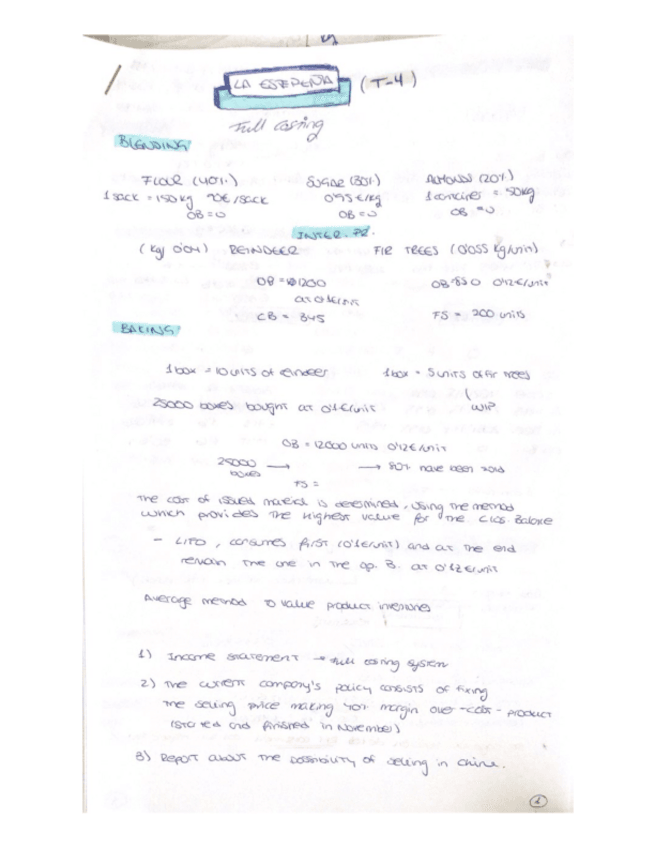 LA ESTEPEÑA (T-4)
Full costing
BLENDING
FLOUR (40%) SUGAR (30%) ALMOND (20%)
1 sack = 150kg 90€/sack 0'95€/kg 1 container = 50kg
OB = 0 OB = 0 OB = 0
INTER. PR.
(kg 0'04) REINDEER FIR TREES (0'055 kg/unit)
OB = 1200 OB 850 0'12€/unit
at
CB = 345 FS = 200 units
BAKING
1 box = 10 units of reindeer 1 box = 5 units of fir trees
25000 boxes bought at 0'1€/unit WIP
OB = 12000 units 0'12€/unit
25000 → → 80% have been sold
boxes
FS =
The cost of issued material is determined, using the method
which provides the highest value for the Clos. Balance
- LIFO, consumes first (0'1€/unit) and at the end
remain the one in the op. B. at 0'12€/unit
Average method to value product inventories
1) Income statement → full costing system
2) The current company's policy consists of fixing
the selling price making 40% margin over-cost-product
(started and finished in November)
3) Report about the possibility of selling in China.
1